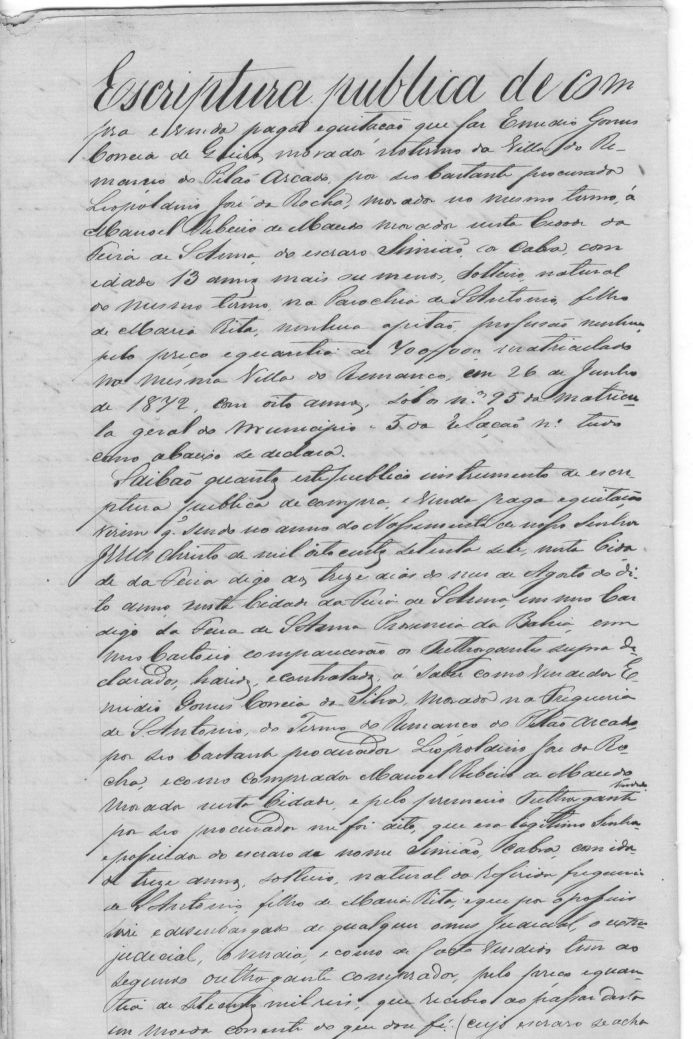 Escriptura publica de com
pra e venda paga e quitação que faz Emedio Gomes
Correia de morador no termo da Villa do Re-
manso do Pilão Arcado, por seo bastante procurador
Leopoldino José da Rocha, morador no mesmo termo, á
Manoel Ribeiro de Macedo morador nesta Cidade da
Feira de S. Anna, do escravo Simião Cabra, com
edade 13 annos mais ou menos, solteiro, natural
do mesmo termo na Parochia de S. Antonio, filho
de Maria Rita, nenhuma aptidão, profissão nenhuma
pelo preço e quantia de 700$000 matriculado
na mesma Villa do Remanso, em 26 de Junho
de 1872, com oito annos, sob os n.os 95 da matricu-
la geral do Municipio e 5 da Relação n.º tudo
como abaixo se declara.
Saibão quantos este publico instrumento de escri-
ptura publica de compra e venda paga e quitação
virem q. sendo no anno do Nascimento de nosso Senhor
Jesus Christo de mil oito centos setenta sete, nesta Cida-
de da Feira digo aos treze dias do mez de Agosto do di-
to anno nesta Cidade da Feira de S. Anna, em meo Car
digo da Feira de S. Anna Provincia da Bahia, em
meo Cartorio comparecerão os outhorgantes supra de-
clarados, havidos, e contratados, á saber como vendedor E-
medio Gomes Correia da Silva, morador na Freguesia
de S. Antonio, do Termo do Remanso do Pilão Arcado,
por seo bastante procurador Leopoldino José da Ro-
cha, e como comprador Manoel Ribeiro de Macedo
morador nesta Cidade, e pelo primeiro outhorgante vendedor
por seo procurador me foi dito, que era legitimo Senhor
e possuidor do escravo de nome Simião, Cabra, com ida-
de treze annos, solteiro, natural da referida freguesia
de S. Antonio, filho de Maria Rita, e que por o possuir
livre e desembargado de qualquer onus Judicial, o extra
judicial, vendia, e como de facto vendido tem ao
segundo outhorgante comprador, pelo preço e quan-
tia de sete centos mil reis, que recebeo ao passar desta
em moeda corrente do que dou fé: (cujo escravo se acha